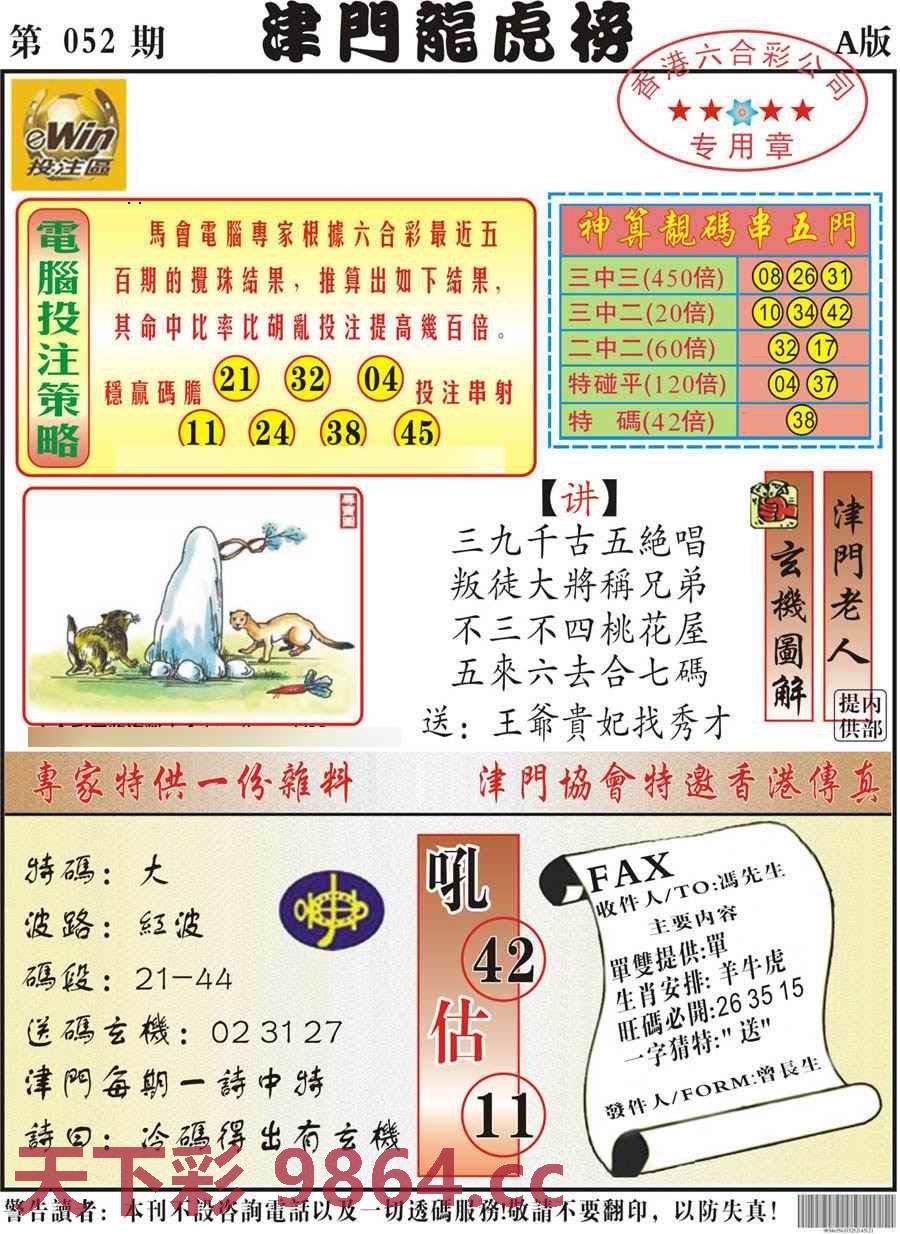 第 052 期
津門龍虎榜
A版
香港六合彩公司
专用章
eWin
投注區
電腦投注策略
馬會電腦專家根據六合彩最近五
百期的攪珠結果，推算出如下結果，
其命中比率比胡亂投注提高幾百倍。
穩贏碼膽 21 32 04 投注串射
11 24 38 45
神算靚碼串五門
三中三(450倍) 08 26 31
三中二(20倍) 10 34 42
二中二(60倍) 32 17
特碰平(120倍) 04 37
特 碼(42倍) 38
【讲】
三九千古五絶唱
叛徒大將稱兄弟
不三不四桃花屋
五來六去合七碼
送：王爺貴妃找秀才
玄機圖解
津門老人
内部提供
專家特供一份雜料
津門協會特邀香港傳真
特碼：大
波路：紅波
碼段：21-44
送碼玄機：02 31 27
津門每期一詩中特
詩曰：冷碼得出有玄機
吼
42
估
11
FAX
收件人/TO:馮先生
主要内容
單雙提供:單
生肖安排:羊牛虎
旺碼必開:26 35 15
一字猜特:"送"
發件人/FORM:曾長生
天下彩 9864.cc
警告讀者：本刊不設咨詢電話以及一切透碼服務!敬請不要翻印，以防失真!